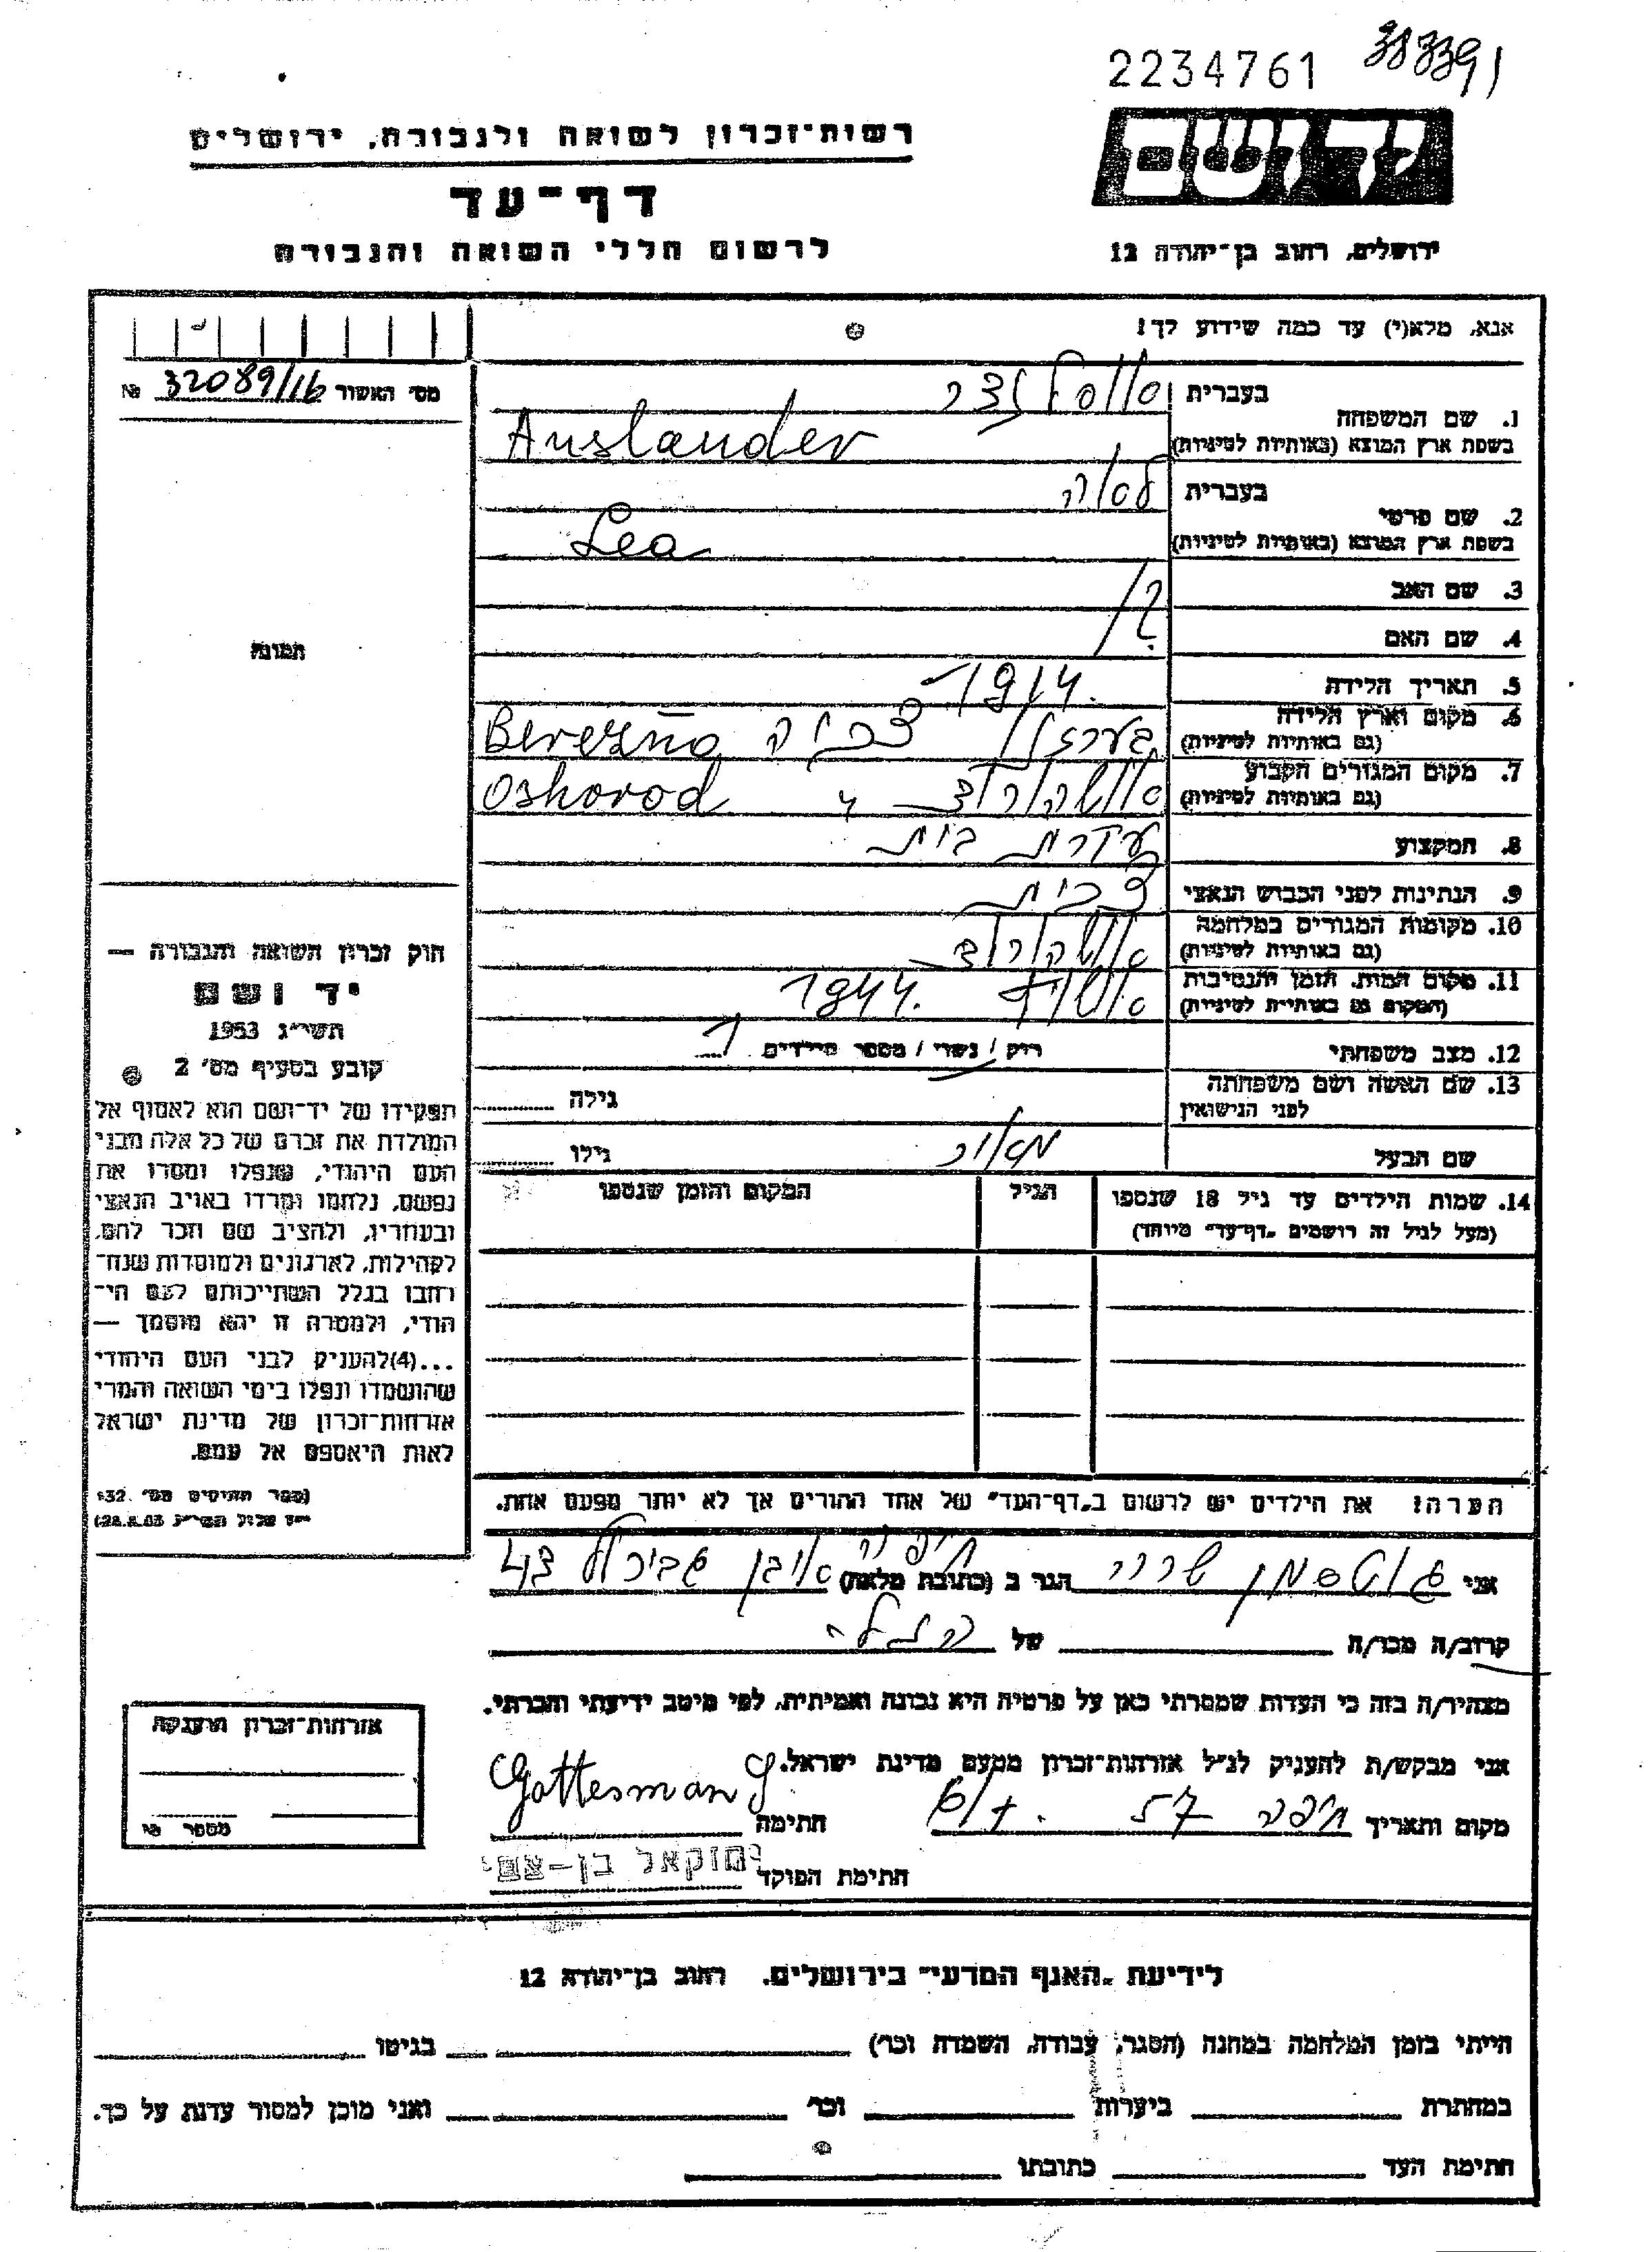 2234761 383391
רשות־זכרון לשואה ולגבורה, ירושלים
דף־עד
לרשום חללי השואה והגבורה
ידושם
ירושלים, רחוב בן־יהודה 12
אנא, מלא(י) עד כמה שידוע לך!
מס' האשור 32089/16 №
1. שם המשפחה
בעברית אוסלנדר
בשפת ארץ המוצא (באותיות לטיניות) Auslander
2. שם פרטי
בעברית לאה
בשפת ארץ המוצא (באותיות לטיניות) Lea
3. שם האב ?
4. שם האם
5. תאריך הלידה 1914.
6. מקום וארץ הלידה
(גם באותיות לטיניות) צ'כיה Berezna
7. מקום המגורים הקבוע
(גם באותיות לטיניות) אושהורוד Oshorod
8. המקצוע עקרת בית
9. הנתינות לפני הכבוש הנאצי צ'כית
10. מקומות המגורים במלחמה
(גם באותיות לטיניות) אושהורוד
11. מקום המות, הזמן והנסיבות
(המקום גם באותיות לטיניות) אושויץ 1944.
12. מצב משפחתי רווק / נשוי / מספר הילדים 1
13. שם האשה ושם משפחתה
לפני הנישואין גילה
שם הבעל מאיר גילו
14. שמות הילדים עד גיל 18 שנספו
(מעל לגיל זה רושמים „דף־עד" מיוחד)
הגיל
המקום והזמן שנספו
הערה! את הילדים יש לרשום ב„דף־העד" של אחד ההורים אך לא יותר מפעם אחת.
תמונה
חוק זכרון השואה והגבורה —
יד ושם
תשי"ג 1953
קובע בסעיף מס' 2
תפקידו של יד־ושם הוא לאסוף אל
המולדת את זכרם של כל אלה מבני
העם היהודי, שנפלו ומסרו את
נפשם, נלחמו ומרדו באויב הנאצי
ובעוזריו, ולהציב שם וזכר להם,
לקהילות, לארגונים ולמוסדות שנח־
רחבו בגלל השתייכותם לעם הי־
הודי, ולמטרה זו יהא מוסמך —
...(4)להעניק לבני העם היהודי
שהושמדו ונפלו בימי השואה והמרי
אזרחות־זכרון של מדינת ישראל
לאות היאספם אל עמם.
אני גוטסמן הגר ב (כתובת מלאה) חיפה אבן גבירול 43
קרוב/ה מכר/ה של הנ"ל
מצהיר/ה בזה כי העדות שמסרתי כאן על פרטיה היא נכונה ואמיתית, לפי מיטב ידיעתי והכרתי.
אני מבקש/ת להעניק לנ"ל אזרחות־זכרון מטעם מדינת ישראל.
מקום ותאריך חיפה 57 חתימה Gottesman S
חתימת הפוקד
אזרחות־זכרון הוענקה
מספר
לידיעת „האגף המדעי" בירושלים, רחוב בן־יהודה 12
הייתי בזמן המלחמה במחנה (הסגר, עבודה, השמדה וכו') בגיטו
במחתרת ביערות וכו' ואני מוכן למסור עדות על כך.
חתימת העד כתובתו